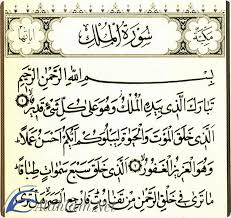 سُورَةُ الْمُلْكِ مَكِّيَّة
بِسْمِ اللهِ الرَّحْمٰنِ الرَّحِيمِ
تَبَارَكَ الَّذِي بِيَدِهِ الْمُلْكُ وَهُوَ عَلٰى كُلِّ شَيْءٍ قَدِيرٌ
الَّذِي خَلَقَ الْمَوْتَ وَالْحَيٰوةَ لِيَبْلُوَكُمْ أَيُّكُمْ أَحْسَنُ عَمَلًا
وَهُوَ الْعَزِيزُ الْغَفُورُ الَّذِي خَلَقَ سَبْعَ سَمٰوَاتٍ طِبَاقًا
مَا تَرٰى فِي خَلْقِ الرَّحْمٰنِ مِنْ تَفَاوُتٍ فَارْجِعِ الْبَصَرَ هَلْ تَرٰى